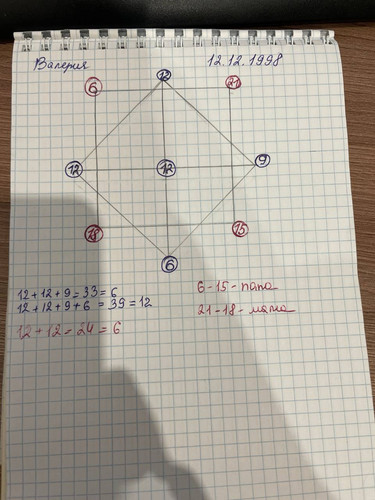 Валерия 12.12.1998
6 12 21
12 12 9
18 15
6
12+12+9=33=6
12+12+9+6=39=12
12+12=24=6
6-15-папа
21-18-мама